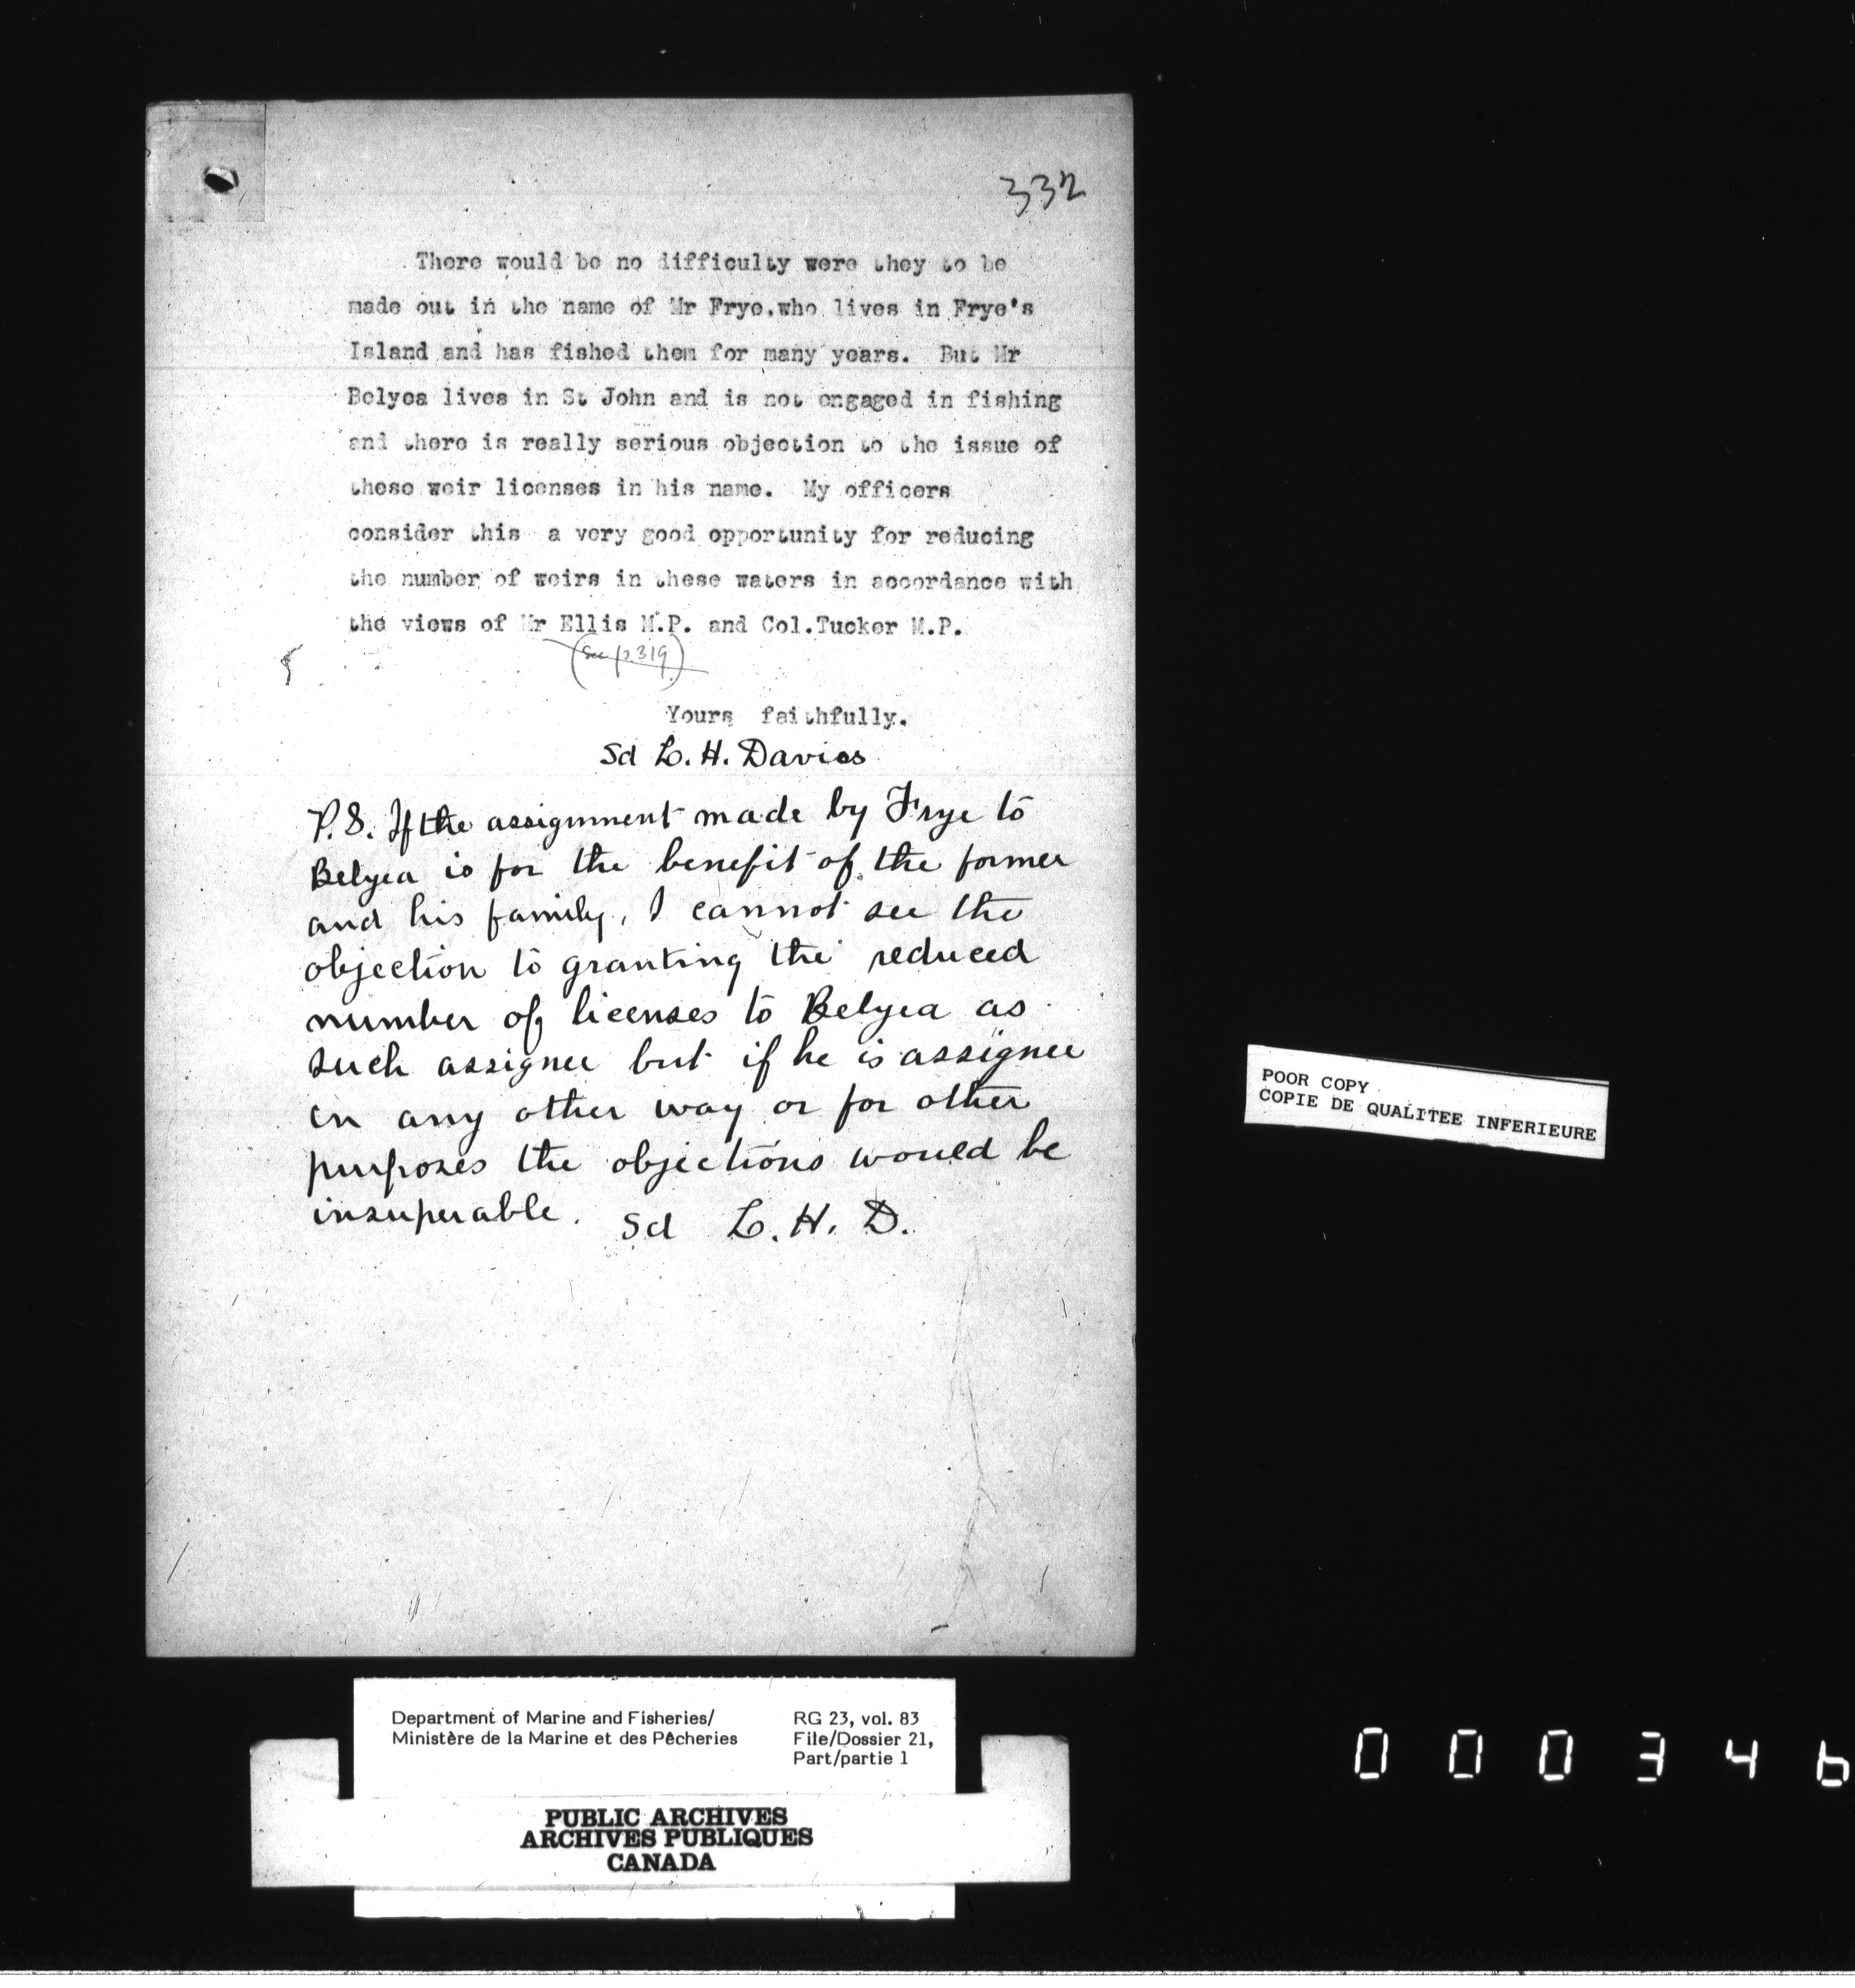 332
There would be no difficulty were they to be
made out in the name of Mr Frye.who lives in Frye's
Island and has fished them for many years. But Mr
Belyea lives in St John and is not engaged in fishing
and there is really serious objection to the issue of
these weir licenses in his name. My officers
consider this a very good opportunity for reducing
the number of weirs in these waters in accordance with
the views of Mr Ellis M.P. and Col.Tucker M.P.
(See p.319)
Yours faithfully.
Sd L. H. Davies
P.S. If the assignment made by Frye to
Belyea is for the benefit of the former
and his family, I cannot see the
objection to granting the reduced
number of licenses to Belyea as
such assignee but if he is assignee
in any other way or for other
purposes the objections would be
insuperable. Sd L. H. D.
POOR COPY
COPIE DE QUALITEE INFERIEURE
Department of Marine and Fisheries/ RG 23, vol. 83
Ministère de la Marine et des Pêcheries File/Dossier 21,
Part/partie 1
PUBLIC ARCHIVES
ARCHIVES PUBLIQUES
CANADA
000346